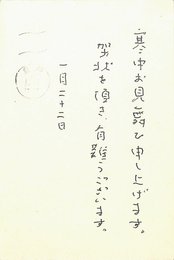 寒中お見舞い申し上げます。
賀状を頂き、有難うございます。
一月二十二日